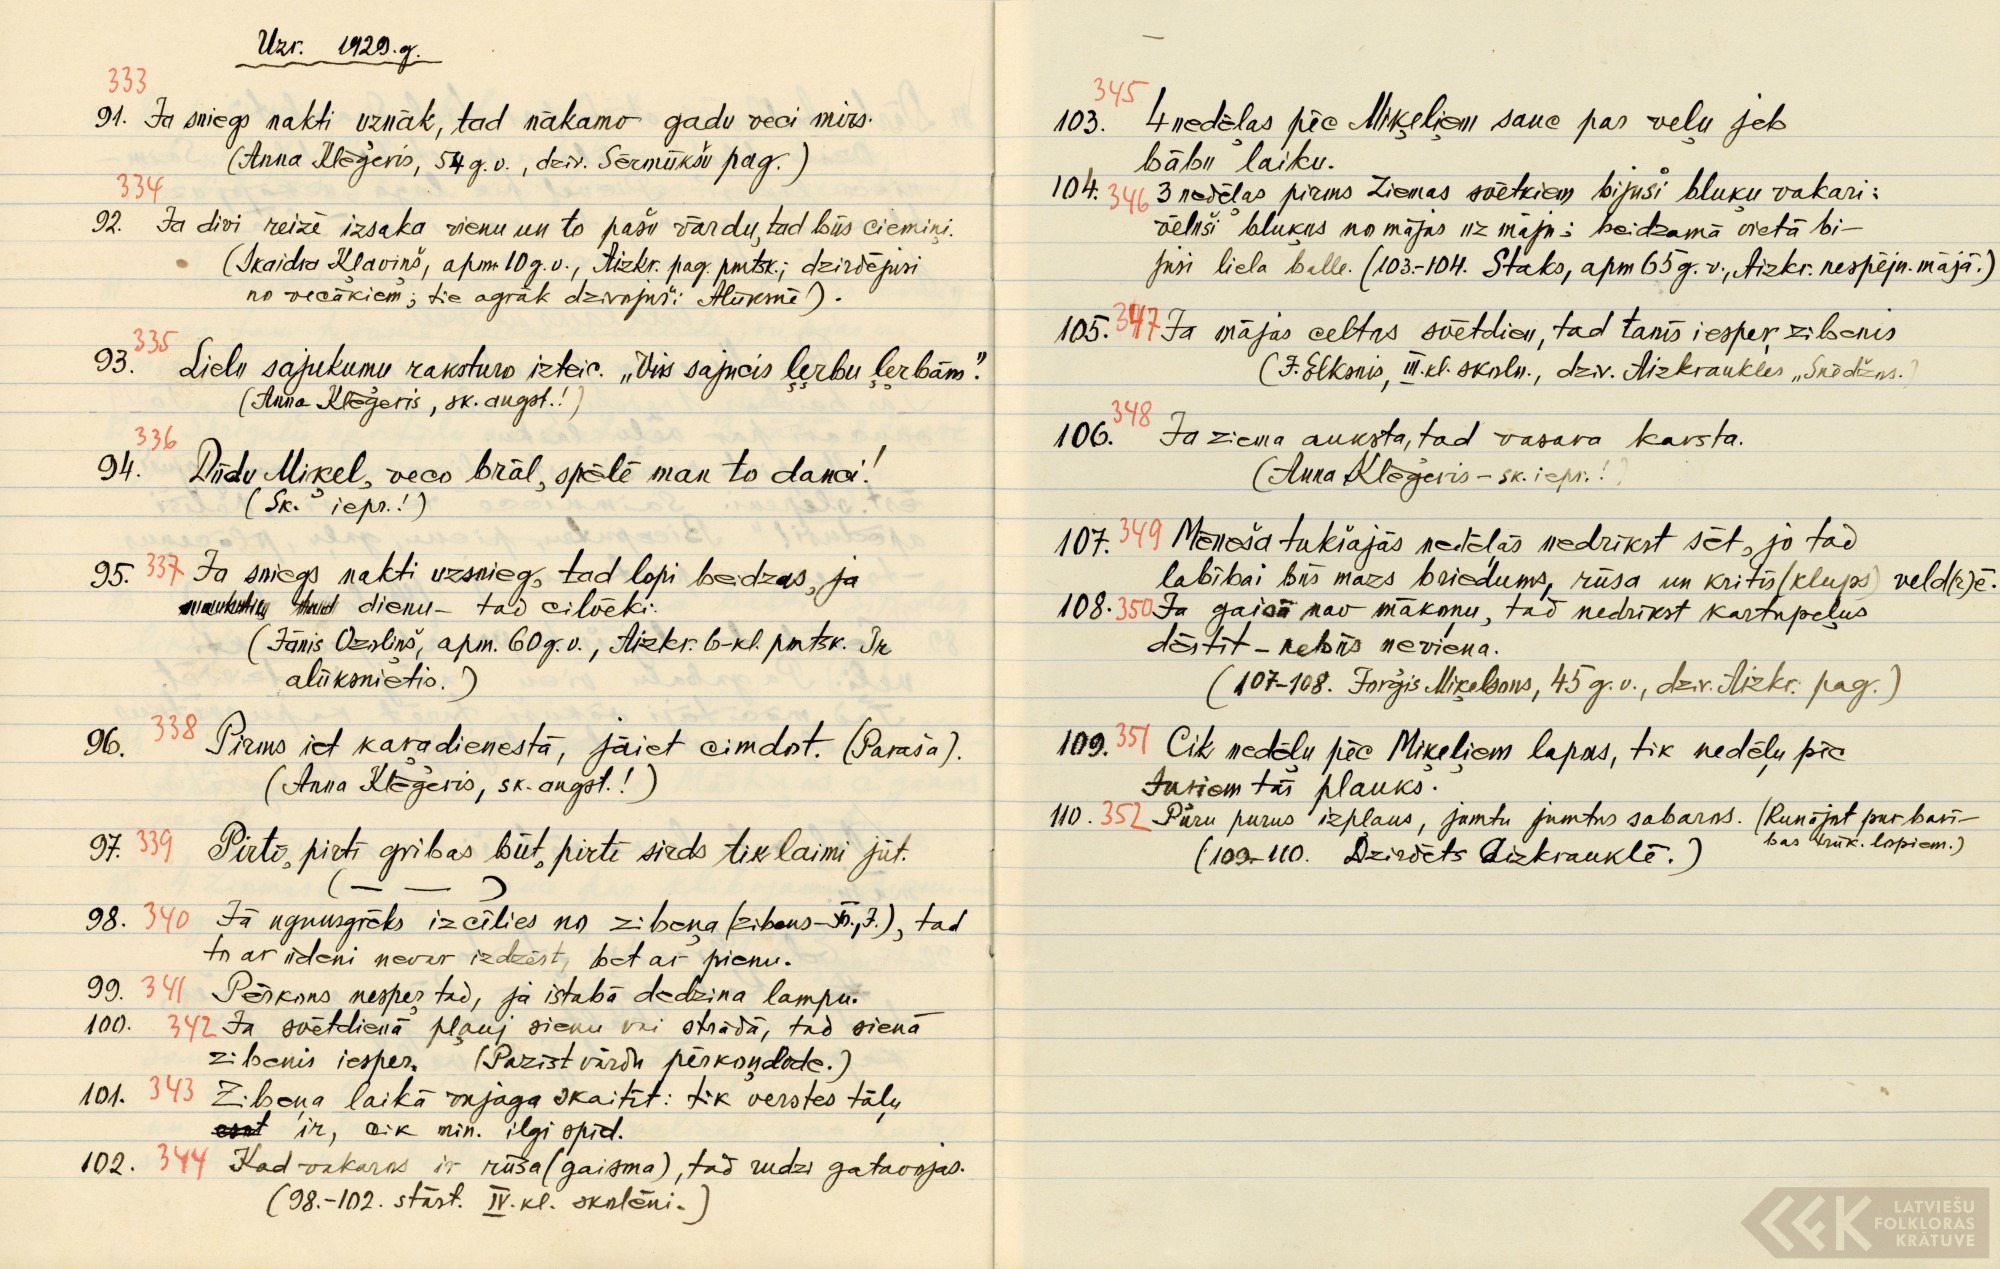 Uzr. 1929.g.
333
91. Ja sniegs nakti uznāk, tad nākamo gadu veci mirs.
(Anna Klēģeris, 54 g.v., dzīv. Sērmūkšu pag.)
334
92. Ja divi reizē izsaka vienu un to pašu vārdu, tad būs ciemiņi.
(Skaidra Kļaviņš, apm. 10 g.v., Aizkr. pag. pmtsk.; dzirdējusi
no vecākiem; tie agrāk dzīvojuši Alūksnē).
335
93. Lielu sajukumu raksturo izteic. „Viss sajucis ļerbu ļerbām".
(Anna Klēģeris, sk. augst.!)
336
94. Dūdu Miķel, veco brāl, spēlē man to danci!
(Sk. iepr.!)
95. 337 Ja sniegs nakti uzsnieg, tad lopi beidzas, ja
dienu – tad cilvēki.
(Jānis Ozoliņš, apm. 60 g.v., Aizkr. 6-kl. pmtsk. Ir
alūksnietis.)
96. 338 Pirms iet karadienestā, jāiet cimdot. (Paraša).
(Anna Klēģeris, sk. augst.!)
97. 339 Pirtī, pirtī gribas būt, pirtī sirds tik laimi jūt.
( — — )
98. 340 Jā ugunsgrēks izcēlies no zibeņa (zibens – J.), tad
to ar ūdeni nevar izdzēst, bet ar pienu.
99. 341 Pērkons nesper tad, ja istabā dedzina lampu.
100. 342 Ja svētdienā pļauj sienu vai strādā, tad sienā
zibenis iesper. (Pazīst vārdu pērkoņdode.)
101. 343 Zibeņa laikā vajaga skaitīt: tik verstes tāļu
ir, cik min. ilgi spīd.
102. 344 Kad vakaros ir rūsa (gaisma), tad rudzi gatavojas.
(98.-102. stāst. IV. kl. skolēni.)
345
103. 4 nedēļas pēc Miķeļiem sauc par veļu jeb
bābu laiku.
104. 346 3 nedēļas pirms Ziemas svētkiem bijuši bluķu vakari:
vēluši bluķus no mājas uz māju; beidzamā vietā bi-
jusi liela balle. (103.-104. Staks, apm 65 g.v., Aizkr. nespējn. mājā.)
105. 347 Ja mājas celtas svētdien, tad tanīs iesper zibenis
(J. Elksnis, III. kl. skoln., dzīv. Aizkraukles „Snēdžos.)
348
106. Ja ziema auksta, tad vasara karsta.
(Anna Klēģeris – sk. iepr.!)
107. 349 Mēneša tukšajās nedēļās nedrīkst sēt, jo tad
labībai būs mazs briedums, rūsa un kritīs (klups) veld(r)ē.
108. 350 Ja gaisā nav mākoņu, tad nedrīkst kartupeļus
dēstīt – nebūs neviena.
(107-108. Jorģis Miķelsons, 45 g.v., dzīv. Aizkr. pag.)
109. 351 Cik nedēļu pēc Miķeļiem lapos, tik nedēļu pēc
Juriem tās plauks.
110. 352 Pūru purus izplaus, jumtu jumtus sabaros. (Runājot par barī-
bas trūk. lopiem.)
(109-110. Dzirdēts Aizkrauklē.)
LATVIEŠU
FOLKLORAS
KRĀTUVE